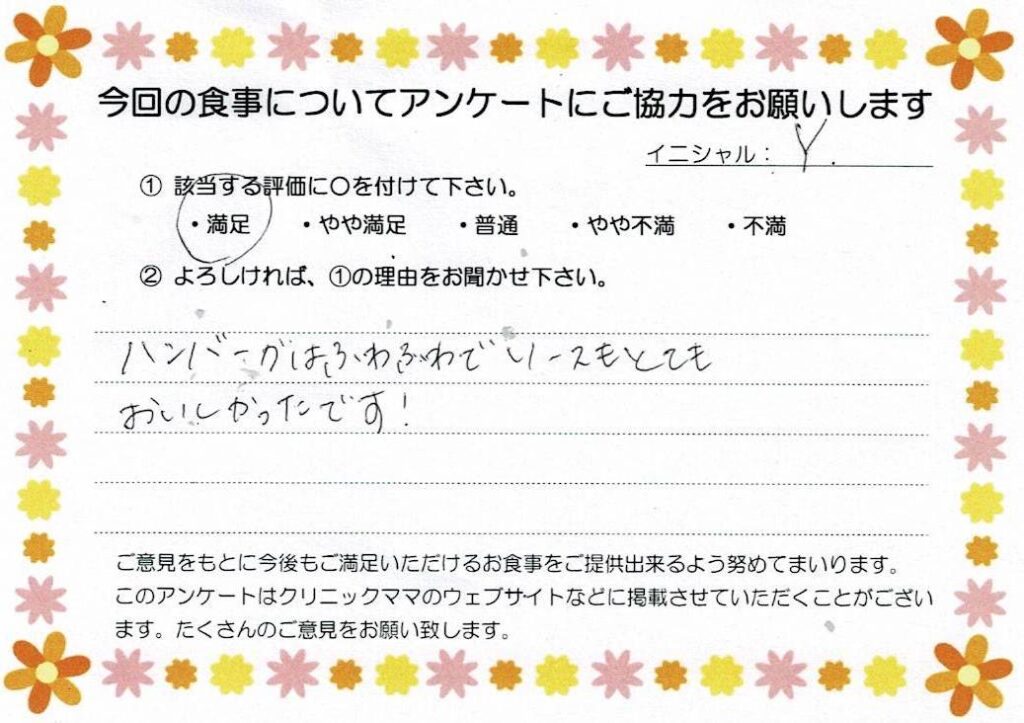 今回の食事についてアンケートにご協力をお願いします
イニシャル： Y.
① 該当する評価に○を付けて下さい。
・満足 ・やや満足 ・普通 ・やや不満 ・不満
② よろしければ、①の理由をお聞かせ下さい。
ハンバーグはふわふわでソースもとても
おいしかったです！
ご意見をもとに今後もご満足いただけるお食事をご提供出来るよう努めてまいります。
このアンケートはクリニックママのウェブサイトなどに掲載させていただくことがござい
ます。たくさんのご意見をお願い致します。